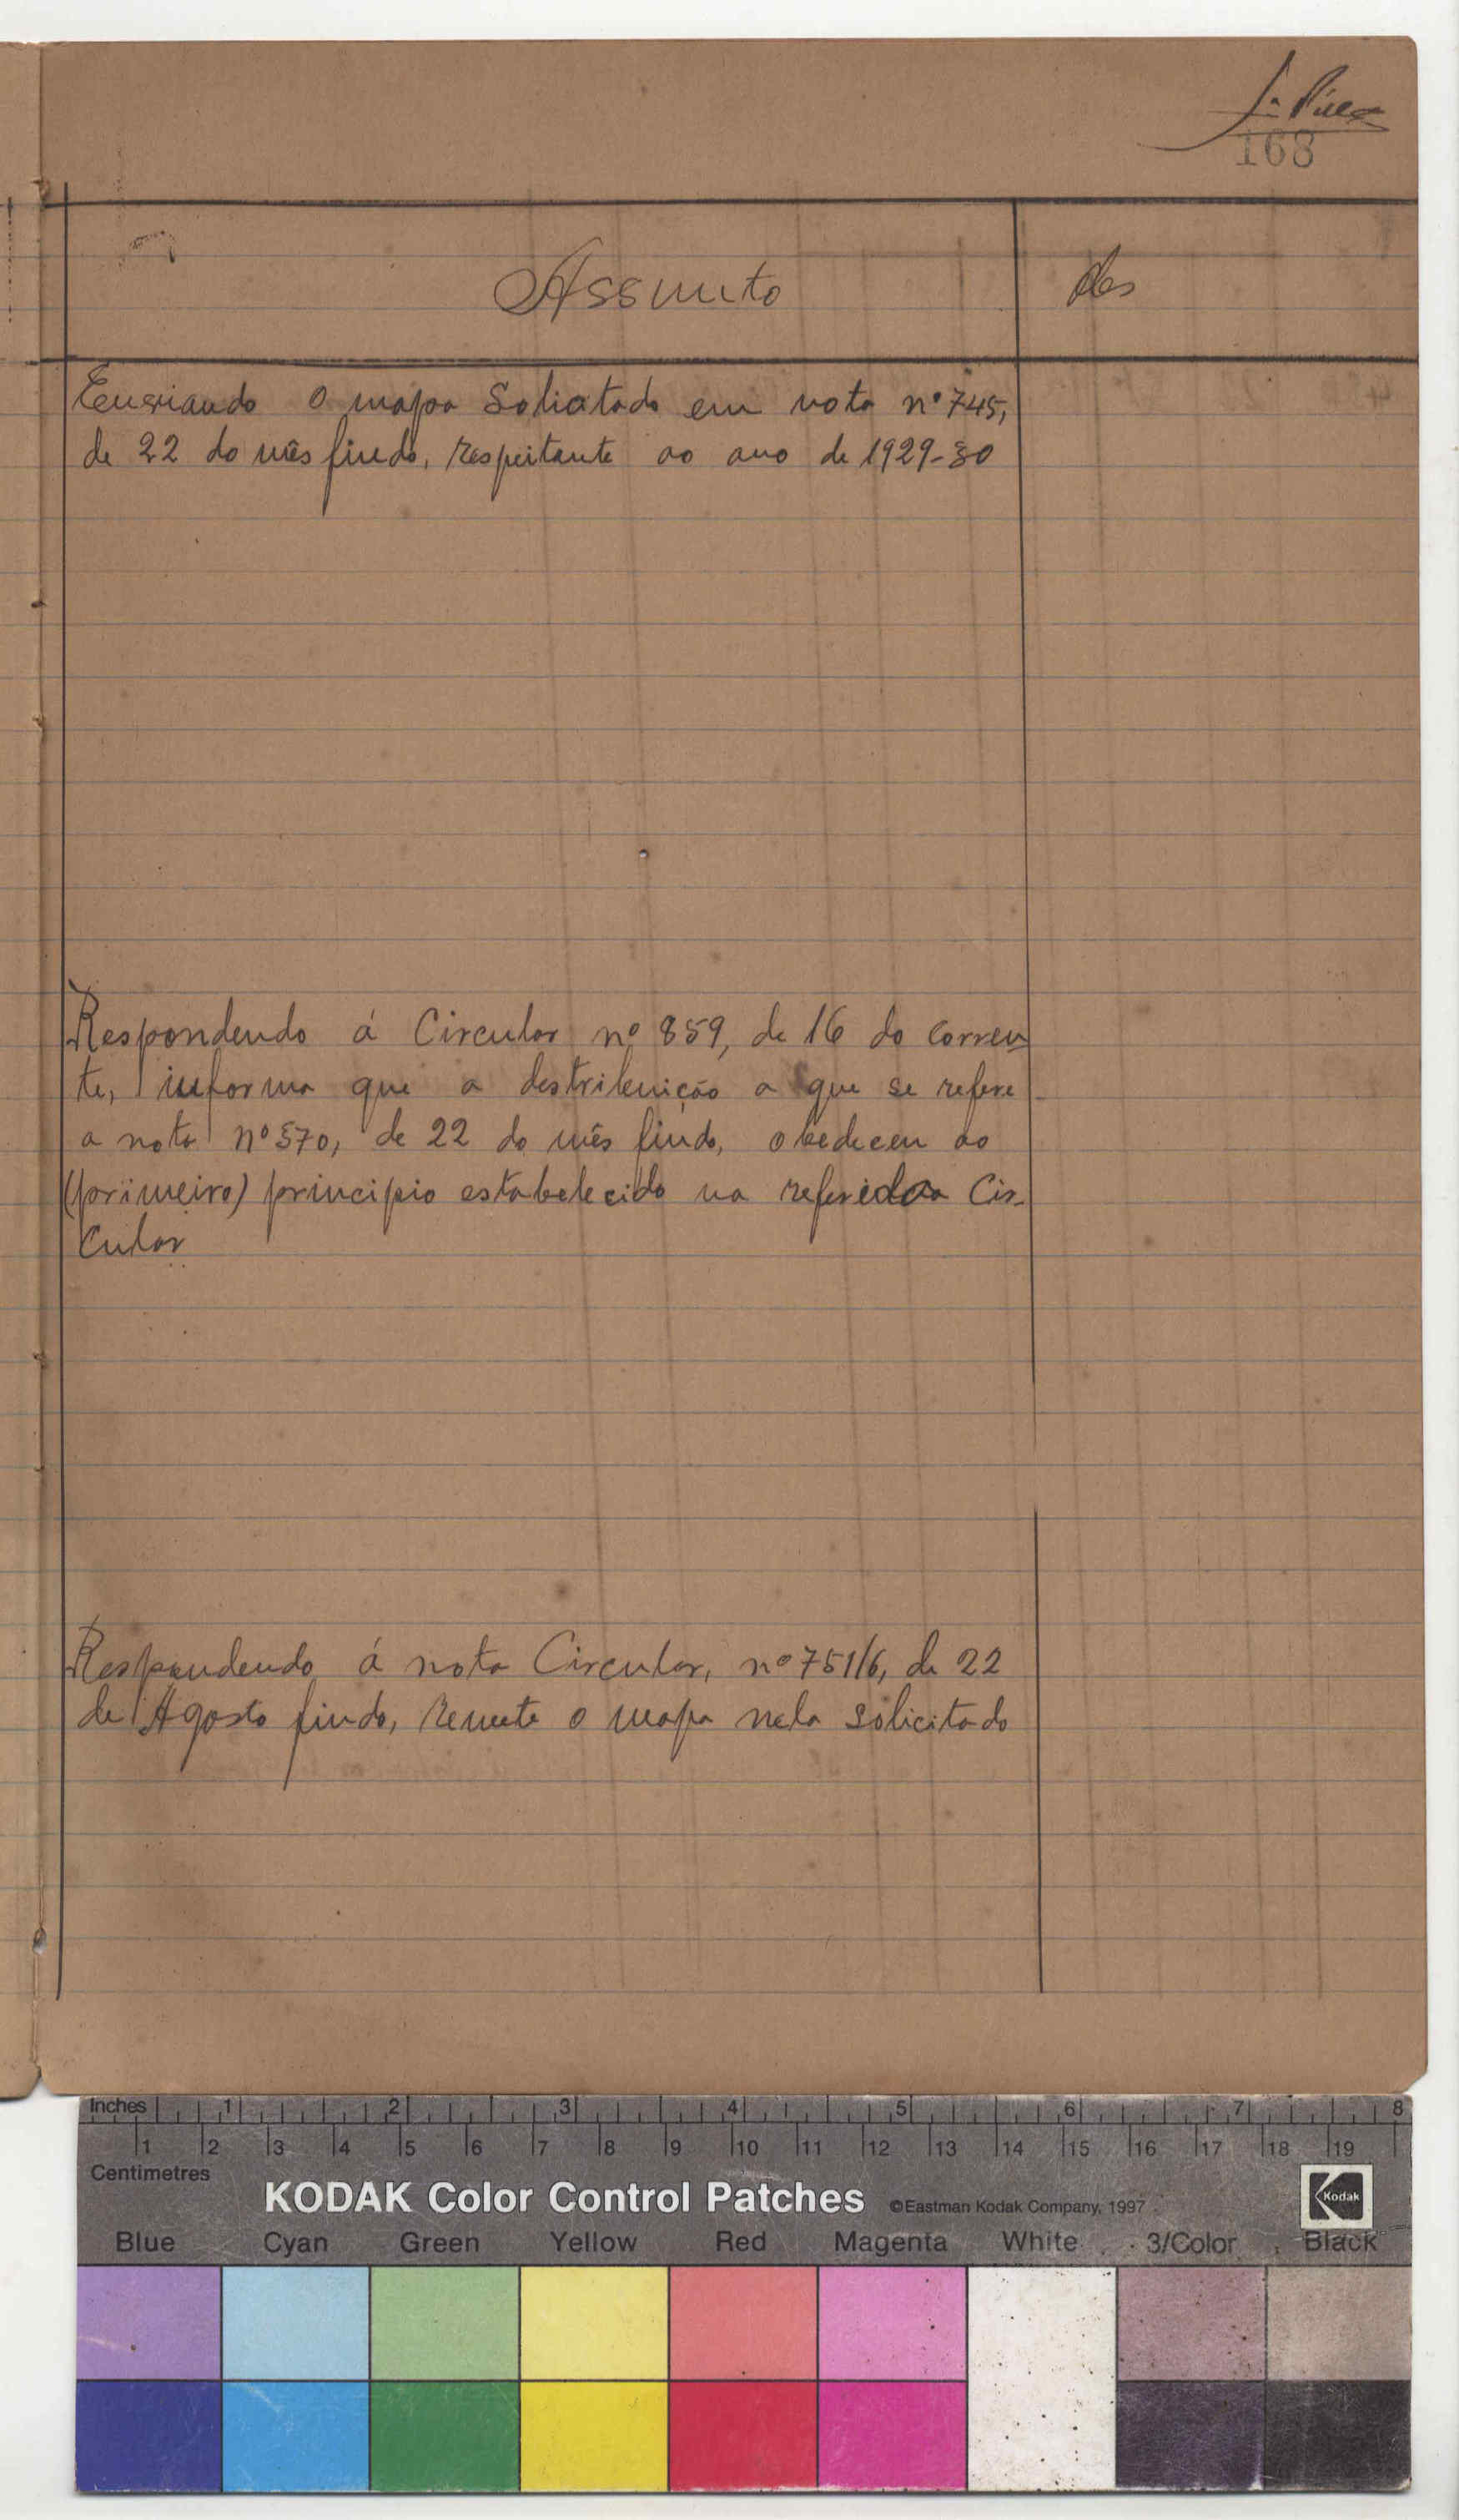 168
Assunto
obs
Enviando o mapa Solicitado em nota nº 745,
de 22 do mês findo, respeitante ao ano de 1929-30
Respondendo á Circular nº 859, de 16 do corren
te, informa que a destribuição a que se refere
a nota nº 570, de 22 do mês findo, obedeceu ao
(primeiro) principio estabelecido na referida Cir-
cular
Respondendo á nota Circular, nº 751/6, de 22
de Agosto findo, remete o mapa nela solicitado
Inches 1 2 3 4 5 6 7 8
1 2 3 4 5 6 7 8 9 10 11 12 13 14 15 16 17 18 19
Centimetres
KODAK Color Control Patches ©Eastman Kodak Company, 1997 Kodak
Blue Cyan Green Yellow Red Magenta White 3/Color Black